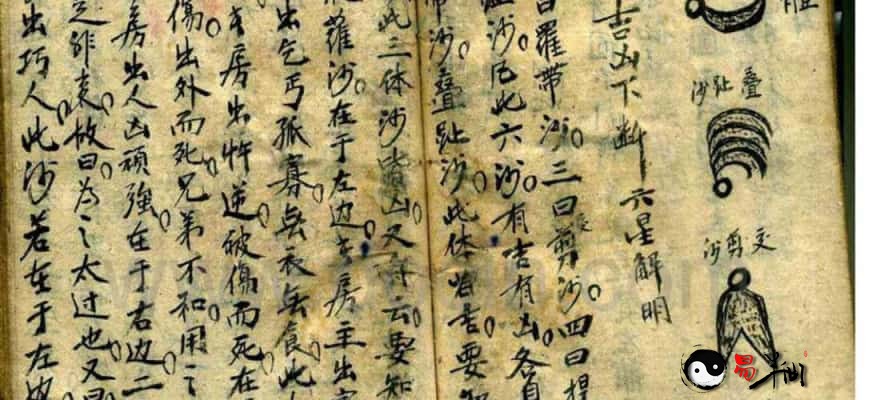 疊趾沙
交剪沙
吉凶下断 六星解明
曰羅帶沙。三曰交剪沙。四曰
沙。凡此六沙。有吉有凶。各自
带沙。疊趾沙。此体皆吉。要
此三体沙皆凶。又詩云。要知
蘿沙。在于左边長房主出
出乞丐孤寡。無衣無食。此
房出忤逆。破傷而死。在
傷出外而死。兄弟不和。用之
房出人凶頑強。在于右边二
是非衰。故曰。為之太过也。又曰
出巧人。此沙若在于左边
易半仙